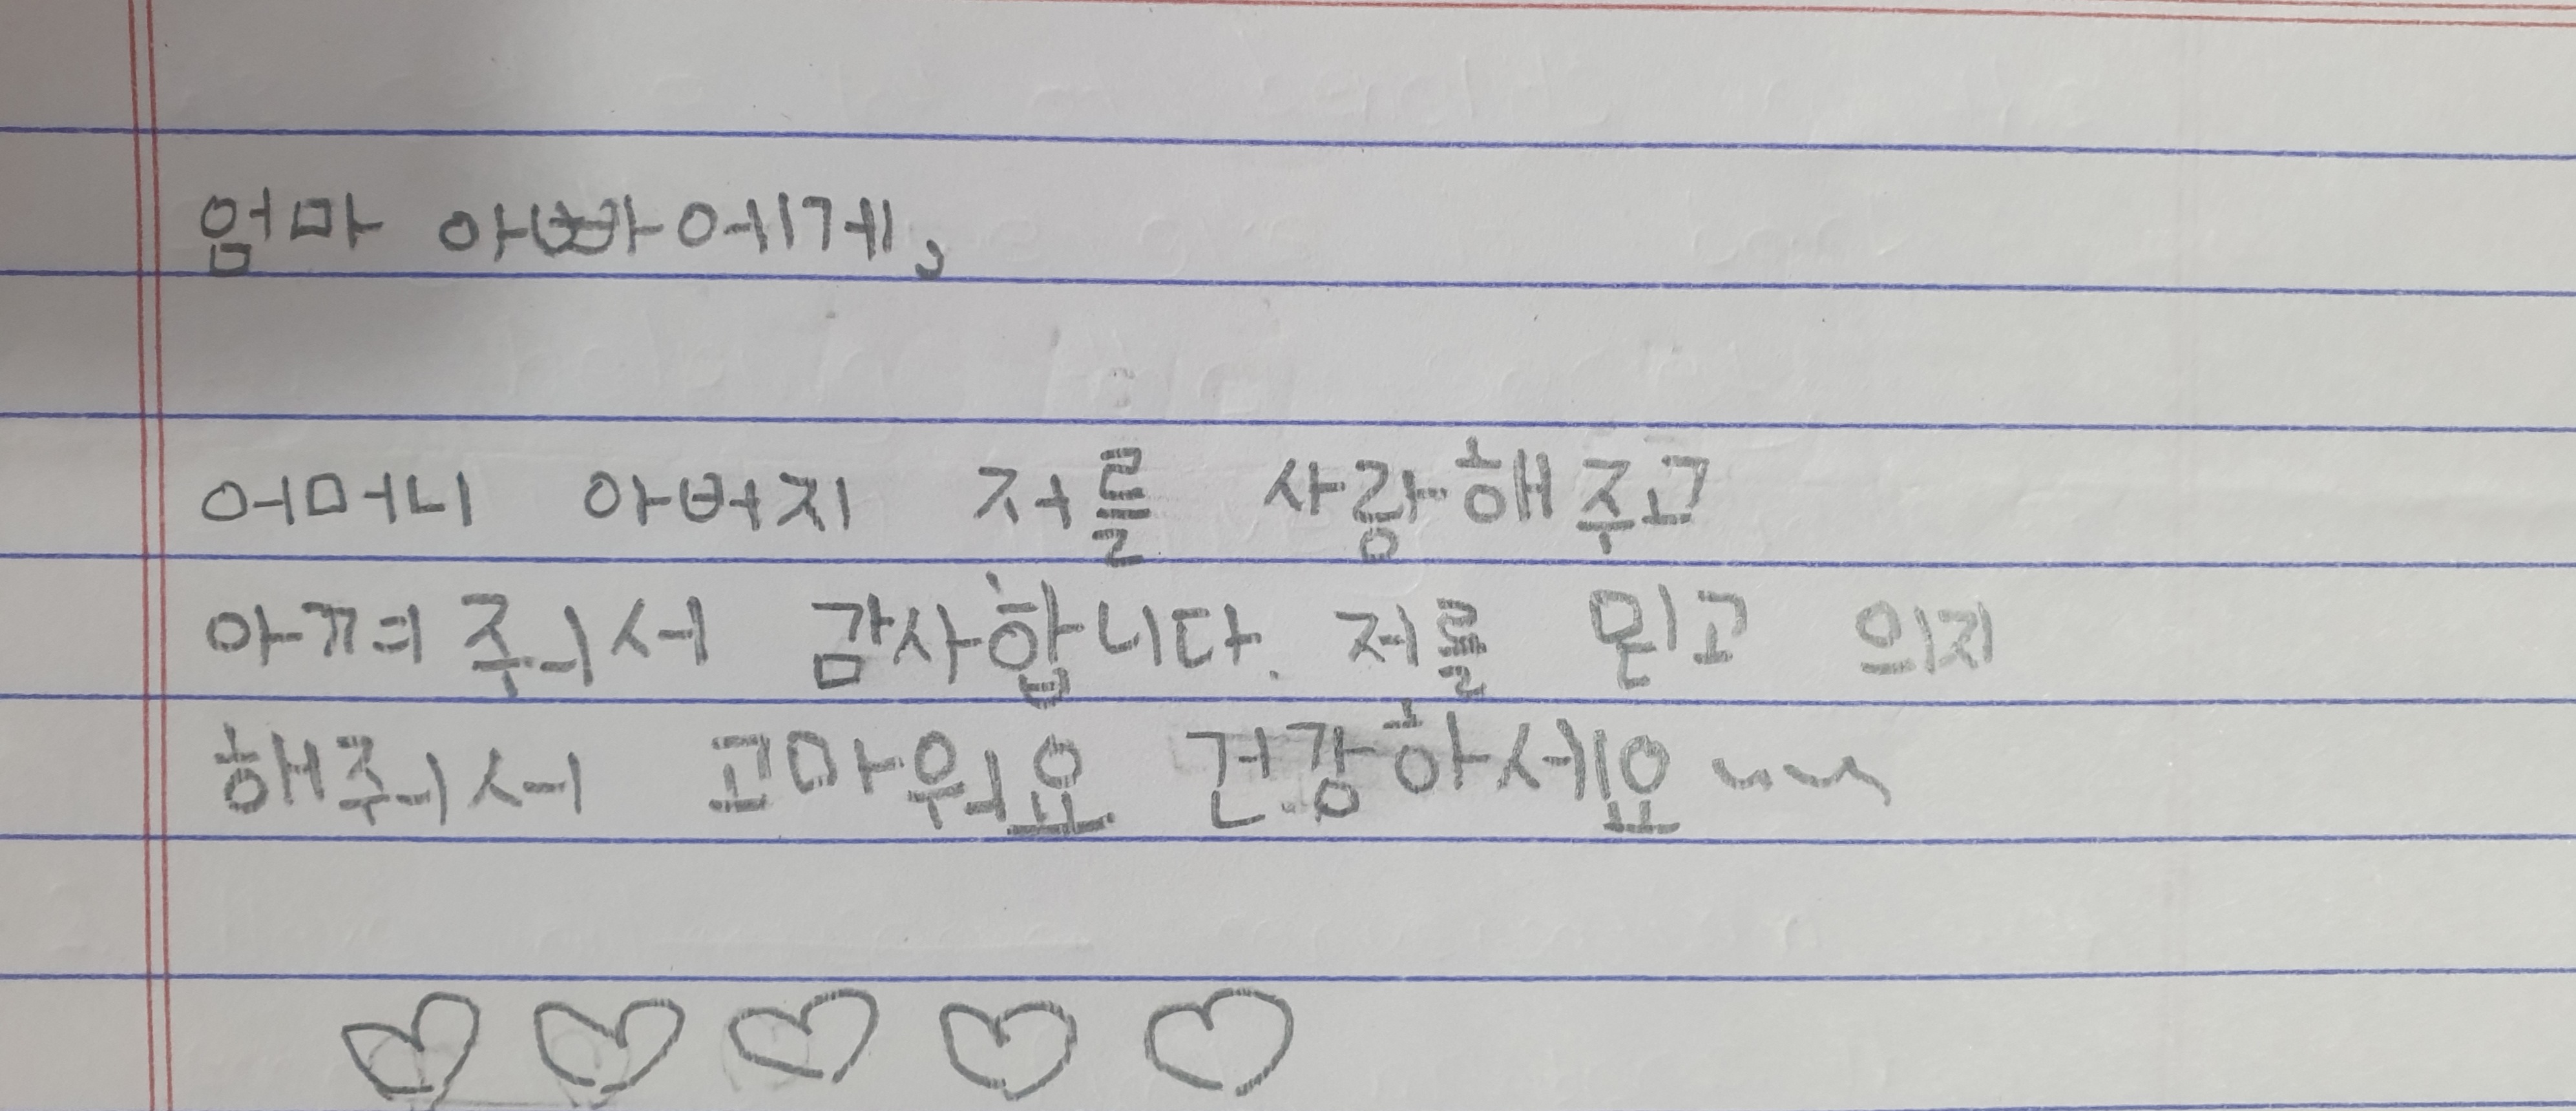 엄마 아빠에게,
어머니 아버지 저를 사랑해주고
아껴줘서 감사합니다. 저를 믿고 의지
해줘서 고마워요 건강하세요~~